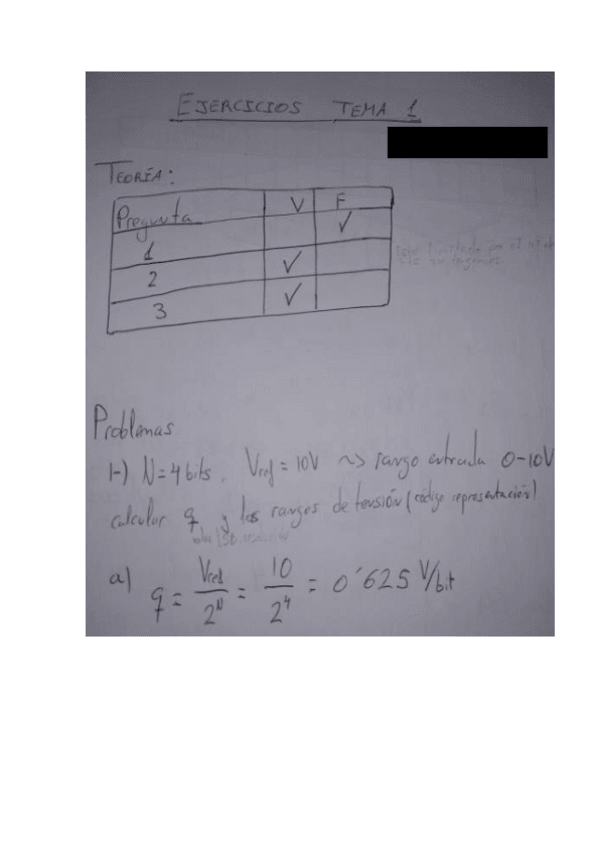 EJERCICIOS TEMA 1
TEORÍA:
Pregunta V F
1 ✓
2 ✓
3 ✓
Problemas
1-) N=4 bits. Vref = 10V ~> rango entrada 0-10V
calcular q y los rangos de tensión (código representación)
a) q = Vref / 2^N = 10 / 2^4 = 0'625 V/bit